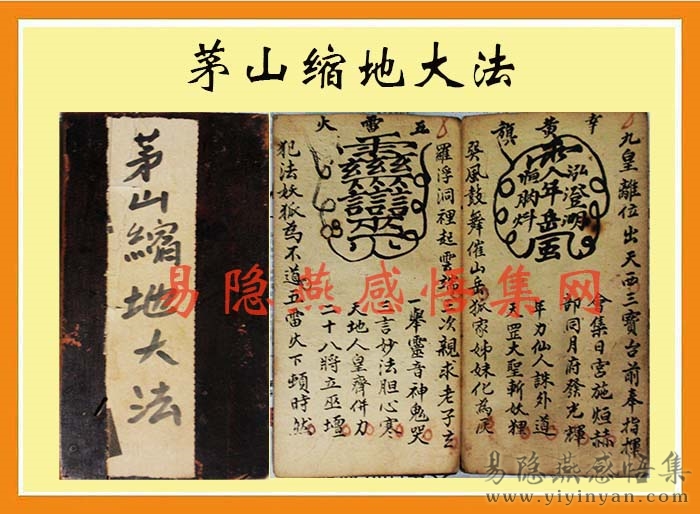 茅山缩地大法
茅山縮地大法
九皇離位出天西三寶台前奉指揮
會集日宮施烜赫
部同月府發光輝
年力仙人誅外道
天罡大聖斬妖狸
黃旗
泓澄湖
巽風鼓舞催山岳狐家姊妹化為灰
羅浮洞裡起雲端三次親求老子玄
一舉靈音神鬼哭
三言妙法胆心寒
天地人皇齊併力
二十八將立巫壇
五雷火
犯法妖狐為不道五雷火下頓時然
易隐燕感悟集网
易隐燕感悟集
www.yiyinyan.com